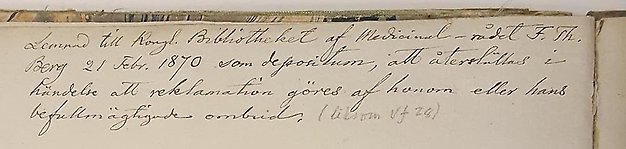 Lemnad till Kongl. Bibliotheket af Medicinal-rådet F. Th.
Berg 21 Febr. 1870 som depositum, att återställas i
händelse att reklamation göres af honom eller hans
befullmägtigade ombud. (liksom Vf 29)